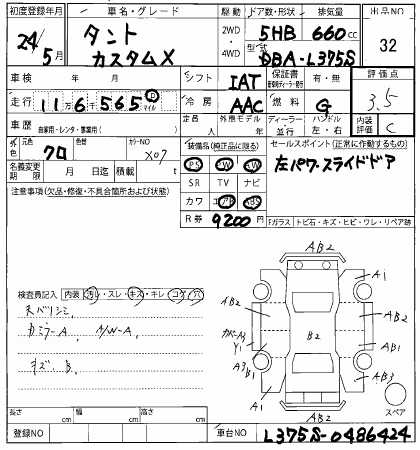 初度登録年月 車名・グレード 駆動 ドア数・形状 排気量 出品NO
24/5月 タント カスタムX 2WD・4WD 5HB 660cc 32
型式 DBA-L375S
車検 年 月 シフト IAT 保証書 有・無 評価点
走行 11万6千565 マイル 冷房 AAC 燃料 G 3.5
車歴 自家用・レンタ・事業用( ) 定員 人 外車モデル 年 ディーラー 並行 ハンドル 左・右 内装評価 C
外色 元色 クロ 色替 カラーNO X07 装備品(純正品に限る) セールスポイント(正常に作動するもの)
PS PW AW 左パワースライドドア
名義変更期限 月 日迄 積載 t SR TV ナビ
注意事項(欠品・修復・不具合箇所および状態) カワ エアB ABS
R券 9200円 Fガラス トビ石・キズ・ヒビ・ワレ・リペア跡
検査員記入 内装 汚レ・スレ・キズ・キレ・コゲ・穴
カミラーA A/W-A
キズ B
AB2
A1
AB2
AB2
B2
カバーA4
Y1
AB1
A3
B1
AB3
A1
AB2
スペア
長さ cm 幅 cm 高さ cm
登録NO 車台NO L375S-0486424